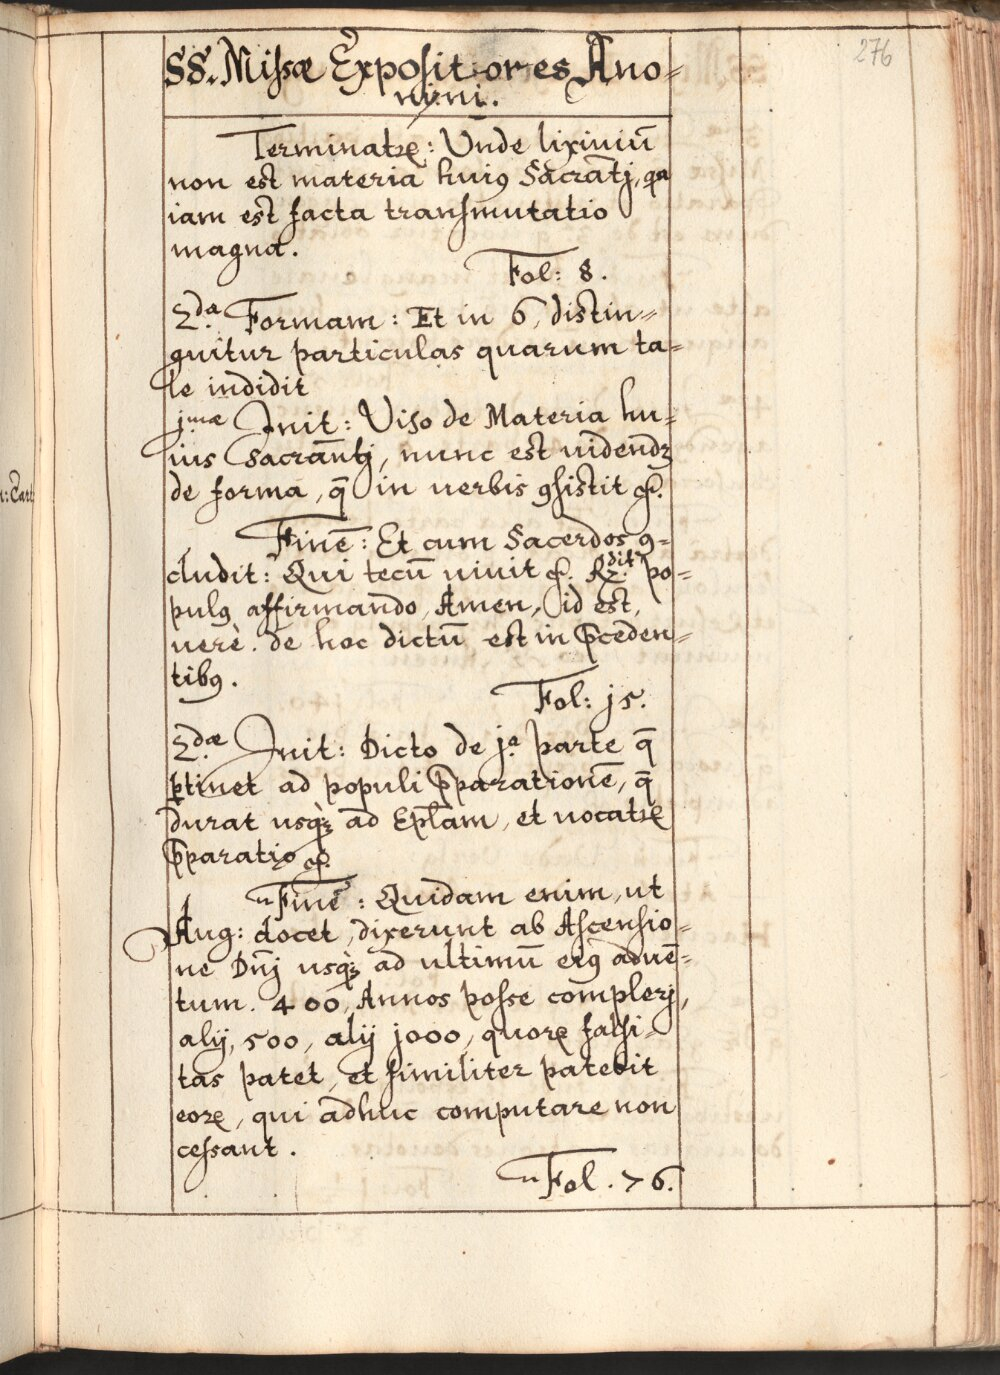 276
SS. Missæ Expositores Ano=
nimi.
Terminatꝝ: Unde lixiviū
non est materia huiꝰ Sacramtj, qa
iam est facta transmutatio
magna.
Fol: 8.
2da. Formam: Et in 6, distin=
guitur particulas quarum ta=
le indidit
jmæ Init: Viso de Materia hu=
ius Sacramtj, nunc est uidendꝫ
de forma, q̄ in uerbis ꝯsistit &.
Finē: Et cum Sacerdos ꝯ=
cludit: Qui tecū uiuit &. Rdit. po=
pulꝰ affirmando, Amen, id est,
uerè. de hoc dictū est in p̄ceden=
tibꝰ.
Fol: j5.
2dæ. Init: Dicto de ja. parte q̄
ꝑtinet ad populi p̄parationē, q̄
durat usqꝫ ad Eplam, et uocatꝝ
p̄paratio &.
Finē: Quidam enim, ut
Aug: docet, dixerunt ab Ascensio=
ne Dn̄j usqꝫ ad ultimū eiꝰ aduē=
tum. 400, Annos posse complerj,
alij, 500, alij j000, quoꝝ falsi=
tas patet, et similiter patebit
eoꝝ, qui adhuc computare non
cessant.
Fol. 76.
: Cart